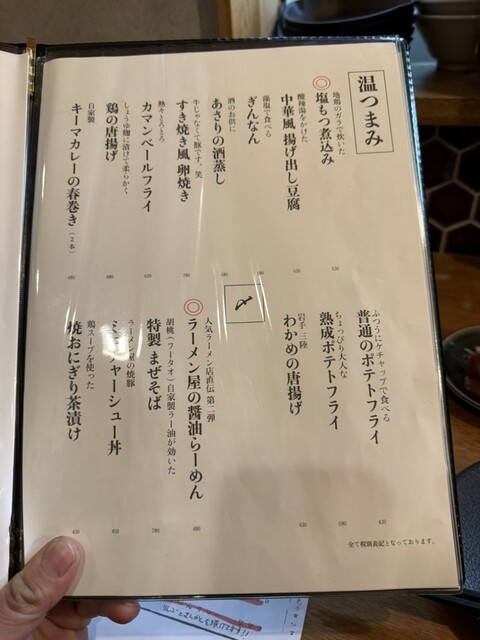 温つまみ
地鶏のガラで炊いた
◎塩もつ煮込み
酸辣湯をかけた
中華風 揚げ出し豆腐
藻塩で食べる
ぎんなん
酒のお供に
あさりの酒蒸し
牛じゃなくて豚です。笑
すき焼き風 卵焼き
熱々とろとろ
カマンベールフライ
しょうゆ麹に漬けて柔らかく
鶏の唐揚げ
自家製
キーマカレーの春巻き(2本)
ふつうにケチャップで食べる
普通のポテトフライ
ちょっぴり大人な
熟成ポテトフライ
岩手 三陸
わかめの唐揚げ
〆
人気ラーメン店直伝 第二弾
◎ラーメン屋の醤油らーめん
胡桃(フータオ)自家製ラー油が効いた
特製 まぜそば
ラーメン屋の焼豚
ミニチャーシュー丼
鶏スープを使った
焼おにぎり茶漬け
全て税別表記となっております。